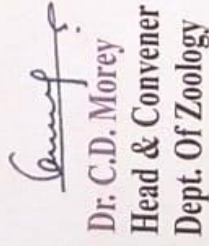 Dr. C.D. Morey
Head & Convener
Dept. Of Zoology